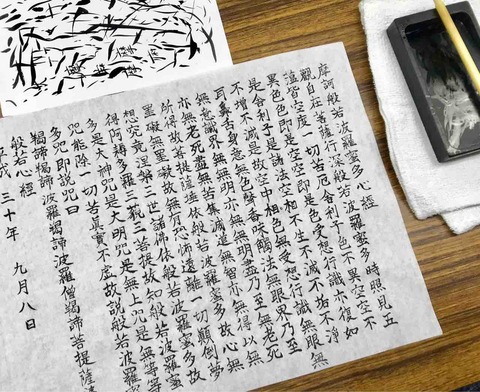 摩訶般若波羅蜜多心經
觀自在菩薩行深般若波羅蜜多時照見五
蘊皆空度一切苦厄舍利子色不異空空不
異色色即是空空即是色受想行識亦復如
是舍利子是諸法空相不生不滅不垢不淨
不增不減是故空中無色無受想行識無眼
耳鼻舌身意無色聲香味觸法無眼界乃至
無意識界無無明亦無無明盡乃至無老死
亦無老死盡無苦集滅道無智亦無得以無
所得故菩提薩埵依般若波羅蜜多故心無
罣礙無罣礙故無有恐怖遠離一切顛倒夢
想究竟涅槃三世諸佛依般若波羅蜜多故
得阿耨多羅三藐三菩提故知般若波羅蜜
多是大神咒是大明咒是無上咒是無等等
咒能除一切苦真實不虛故說般若波羅
多咒即說咒曰
羯諦羯諦波羅羯諦波羅僧羯諦菩提薩
般若心經
平成三十年 九月八日